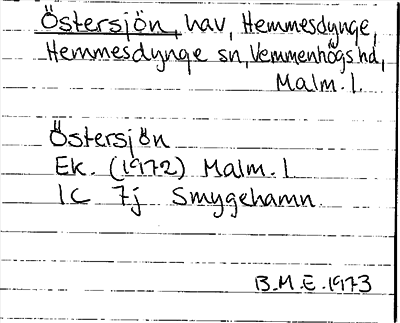 Östersjön, hav, Hemmesdynge,
Hemmesdynge sn, Vemmenhögs hd,
Malm. l.
Östersjön
Ek. (1972) Malm. l
1C 7j Smygehamn
B.M.E. 1973